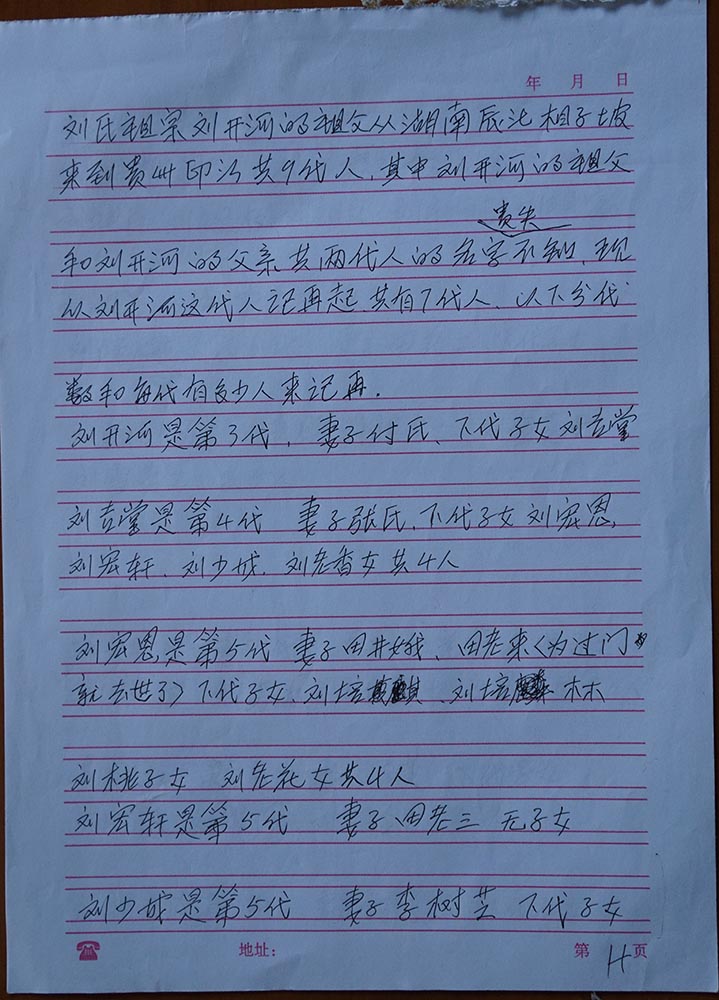 年 月 日
刘氏祖宗刘开河的祖父从湖南辰沅相子坡
来到贵州印江共9代人,其中刘开河的祖父
遗失
和刘开河的父亲共两代人的名字不知,现
从刘开河这代人记再起,共有7代人,以下分代
数和每代有多少人来记再.
刘开河是第3代,妻子付氏、下代子女刘吉堂
刘吉堂是第4代 妻子张氏,下代子女刘宏恩,
刘宏轩、刘少成,刘老香女共4人
刘宏恩是第5代 妻子田井娥、田老来(为过门
就去世了)下代子女、刘培 、刘培 林
刘桃子女 刘老花女共4人
刘宏轩是第5代 妻子田老三 无子女
刘少成是第5代 妻子李树芝 下代子女
地址: 第 页